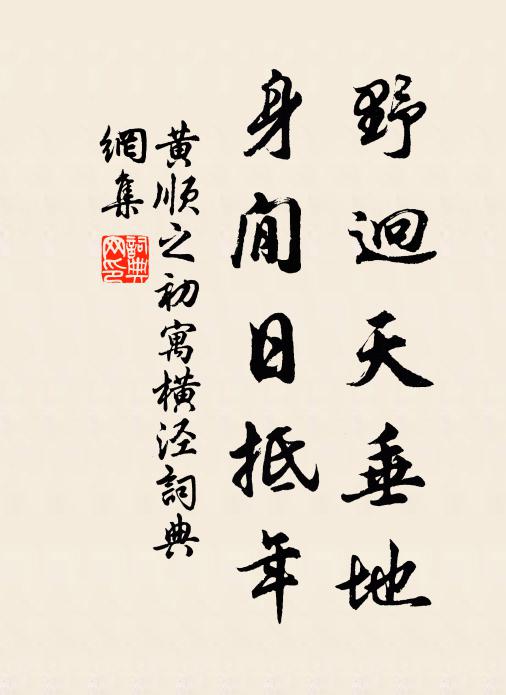 野迥天垂地
身閒日抵年
黄順之初寓橫泾詞典
網集
詞典网印